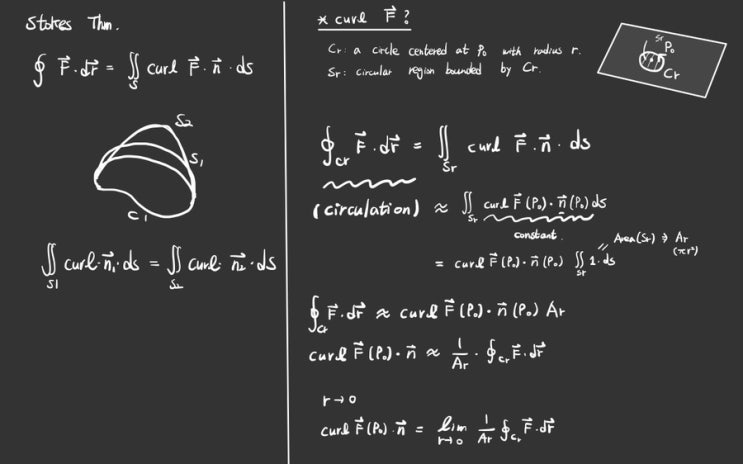 Stokes Thm.
∮ F⃗·dr⃗ = ∬_S curl F⃗·n⃗·ds
S2
S1
C1
∬_S1 curl·n⃗₁·ds = ∬_S2 curl·n⃗₂·ds
* curl F⃗?
Cr: a circle centered at P₀ with radius r.
Sr: circular region bounded by Cr.
Sr
P₀
Cr
∮_Cr F⃗·dr⃗ = ∬_Sr curl F⃗·n⃗·ds
(circulation) ≈ ∬_Sr curl F⃗(P₀)·n⃗(P₀) ds
constant.
= curl F⃗(P₀)·n⃗(P₀) ∬_Sr 1·ds
Area(Sr) ⇒ Ar
(πr²)
∮_Cr F⃗·dr⃗ ≈ curl F⃗(P₀)·n⃗(P₀) Ar
curl F⃗(P₀)·n⃗ ≈ 1/Ar · ∮_Cr F⃗·dr⃗
r→0
curl F⃗(P₀)·n⃗ = lim_r→0 1/Ar ∮_Cr F⃗·dr⃗